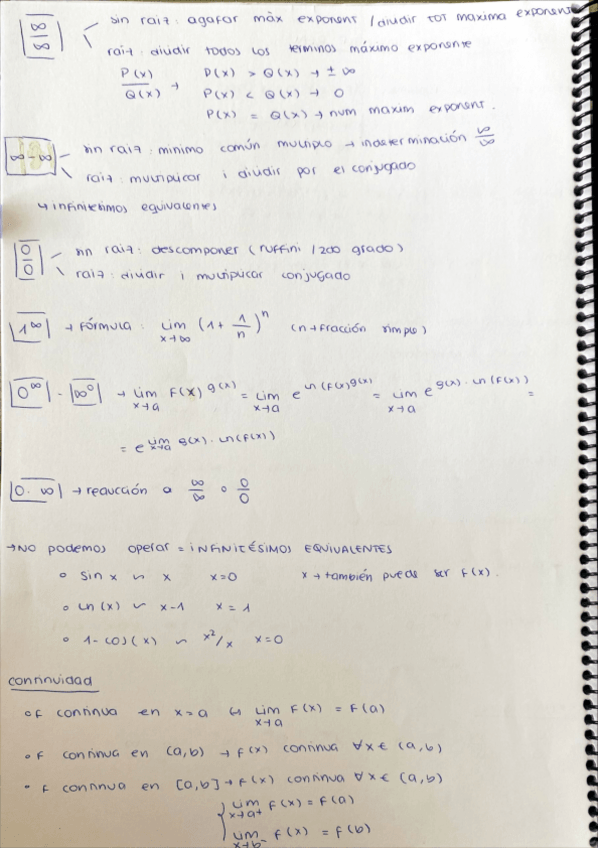 ∞/∞ sin raiz: agafar màx exponent / dividir tot maxima exponent
raiz: dividir todos los terminos máximo exponente
P(x)/Q(x) → P(x) > Q(x) → ± ∞
P(x) < Q(x) → 0
P(x) = Q(x) → num maxim exponent.
∞-∞ sin raiz: minimo común multiplo → indeterminación ∞/∞
raiz: multiplicar i dividir por el conjugado
↳ infinitesimos equivalentes
0/0 sin raiz: descomponer (ruffini / 2do grado)
raiz: dividir i multiplicar conjugado
1^∞ → fórmula: lim x→∞ (1 + 1/n)^n (n → fracción simple)
0^∞ - ∞^0 → lim x→a f(x)^g(x) = lim x→a e^ln(f(x)^g(x)) = lim x→a e^g(x)·ln(f(x)) =
= e^lim x→a g(x)·ln(f(x))
0·∞ → reducción a ∞/∞ o 0/0
→ NO podemos operar = INFINITÉSIMOS EQUIVALENTES
∘ sin x ∽ x x=0 x → también puede ser f(x).
∘ ln(x) ∽ x-1 x=1
∘ 1-cos(x) ∽ x²/x x=0
continuidad
∘ f continua en x=a ↔ lim x→a f(x) = f(a)
∘ f continua en (a,b) → f(x) continua ∀x ∈ (a,b)
∘ f continua en [a,b] → f(x) continua ∀x ∈ (a,b)
lim x→a⁺ f(x) = f(a)
lim x→b⁻ f(x) = f(b)